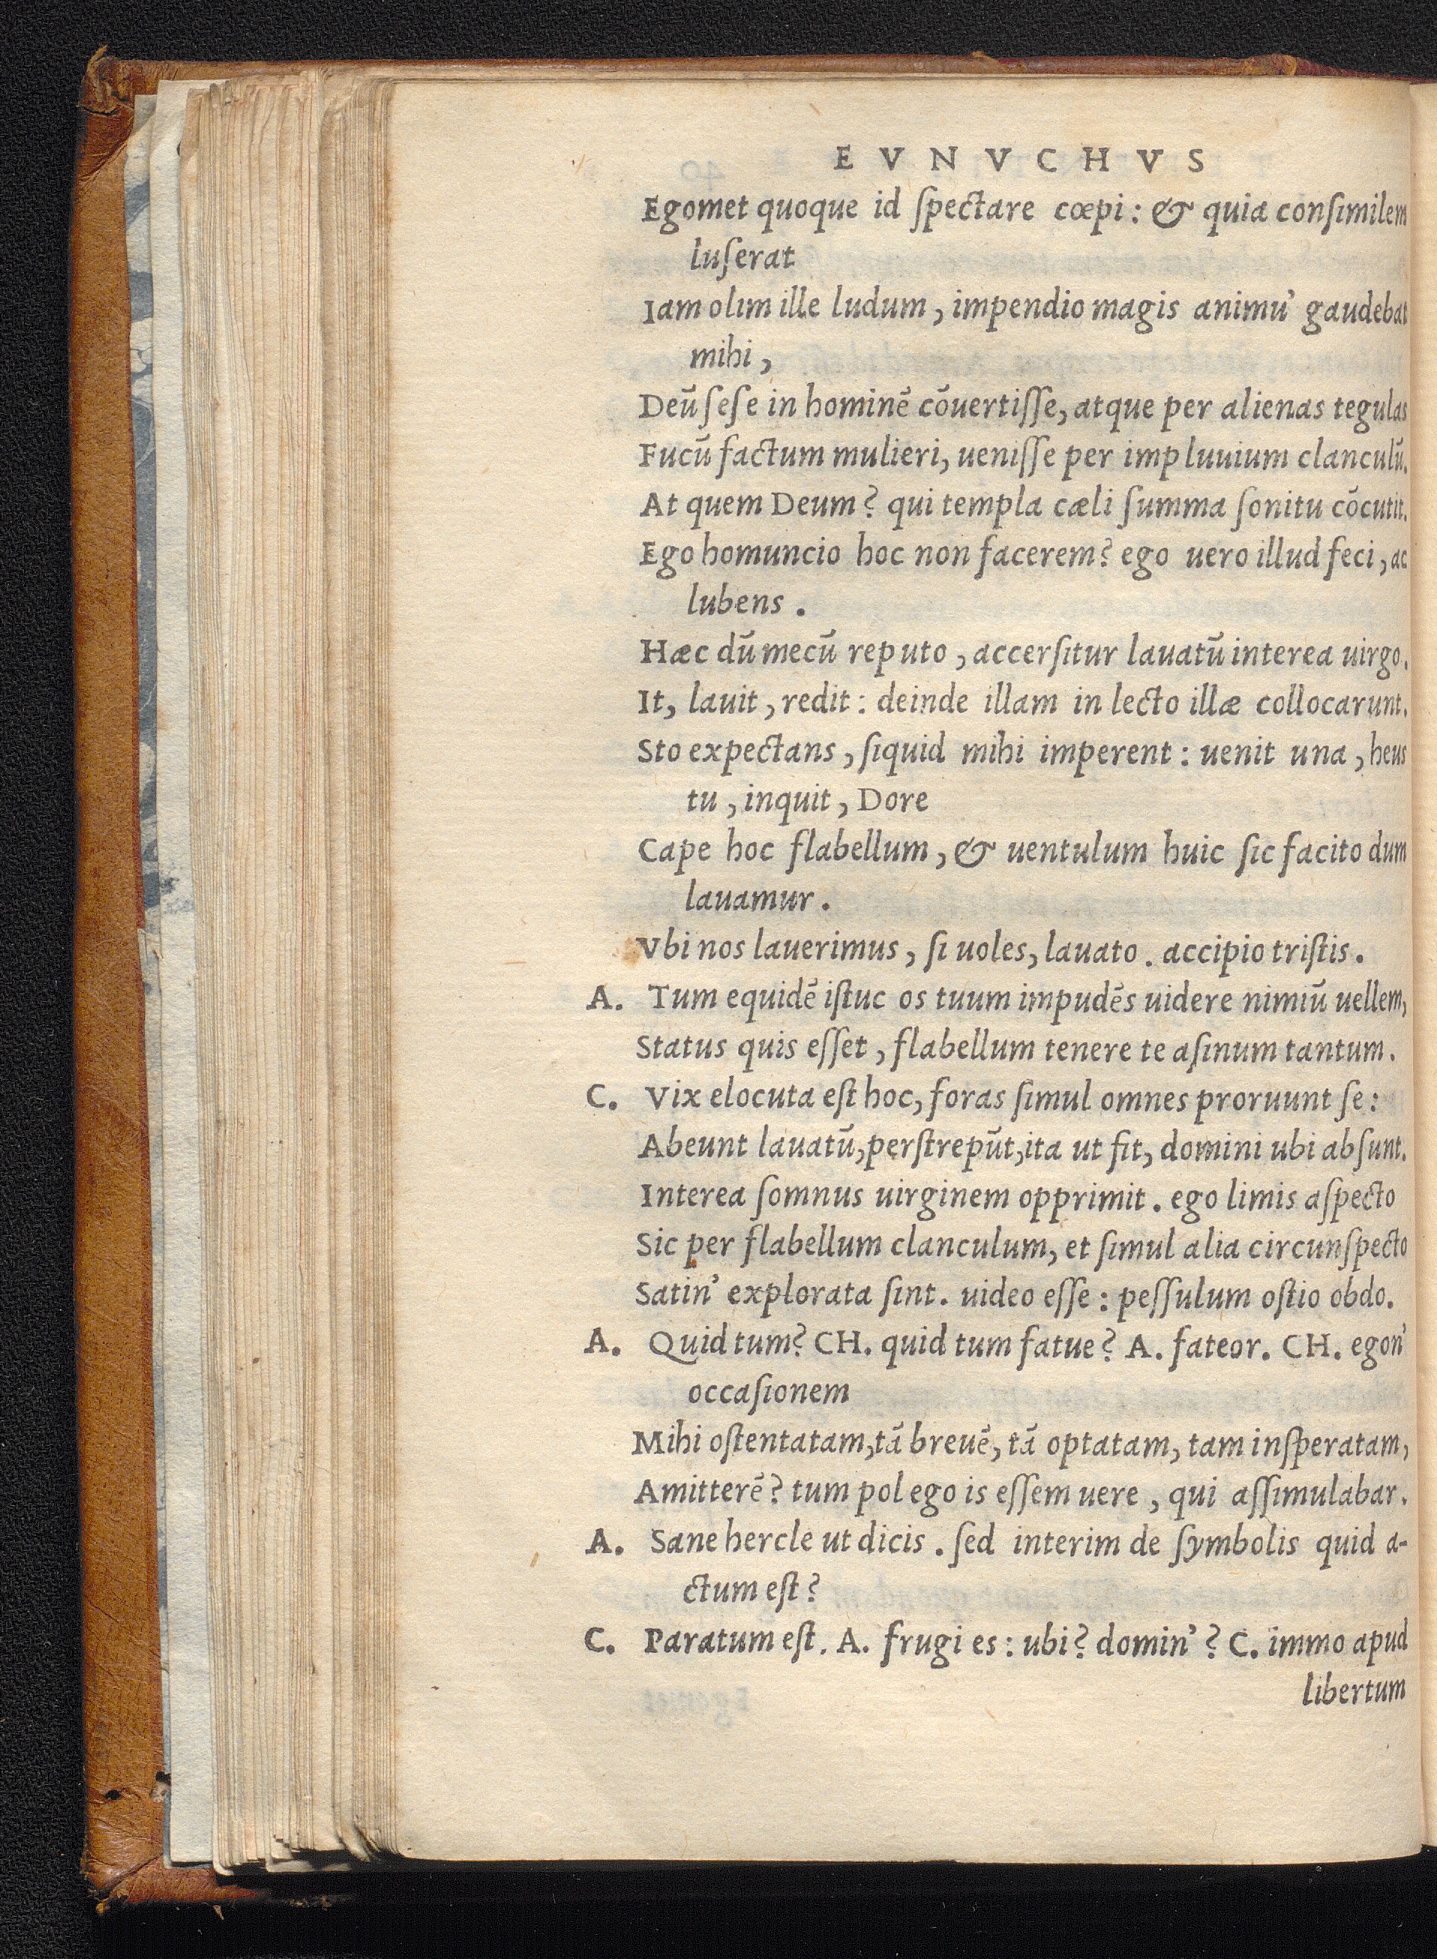 EVNVCHVS
Egomet quoque id ſpectare cœpi: & quia conſimilem
luſerat
Iam olim ille ludum, impendio magis animu' gaudebat
mihi,
Deū ſeſe in hominē cōuertiſſe, atque per alienas tegulas
Fucū factum mulieri, ueniſſe per impluuium clanculū.
At quem Deum? qui templa cæli ſumma ſonitu cōcutit.
Ego homuncio hoc non facerem? ego uero illud feci, ac
lubens.
Hæc dū mecū reputo, accerſitur lauatū interea uirgo.
It, lauit, redit: deinde illam in lecto illæ collocarunt.
Sto expectans, ſiquid mihi imperent: uenit una, heus
tu, inquit, Dore
Cape hoc flabellum, & uentulum huic ſic facito dum
lauamur.
Vbi nos lauerimus, ſi uoles, lauato. accipio triſtis.
A. Tum equidē iſtuc os tuum impudēs uidere nimiū uellem,
Status quis eſſet, flabellum tenere te aſinum tantum.
C. Vix elocuta eſt hoc, foras ſimul omnes proruunt ſe:
Abeunt lauatū, perſtrepūt, ita ut fit, domini ubi abſunt.
Interea ſomnus uirginem opprimit. ego limis aſpecto
Sic per flabellum clanculum, et ſimul alia circunſpecto
Satin' explorata ſint. uideo eſſe: peſſulum oſtio obdo.
A. Quid tum? CH. quid tum fatue? A. fateor. CH. egon'
occaſionem
Mihi oſtentatam, tā breuē, tā optatam, tam inſperatam,
Amitterē? tum pol ego is eſſem uere, qui aſſimulabar.
A. Sane hercle ut dicis. ſed interim de ſymbolis quid a-
ctum eſt?
C. Paratum eſt. A. frugi es: ubi? domin'? C. immo apud
libertum